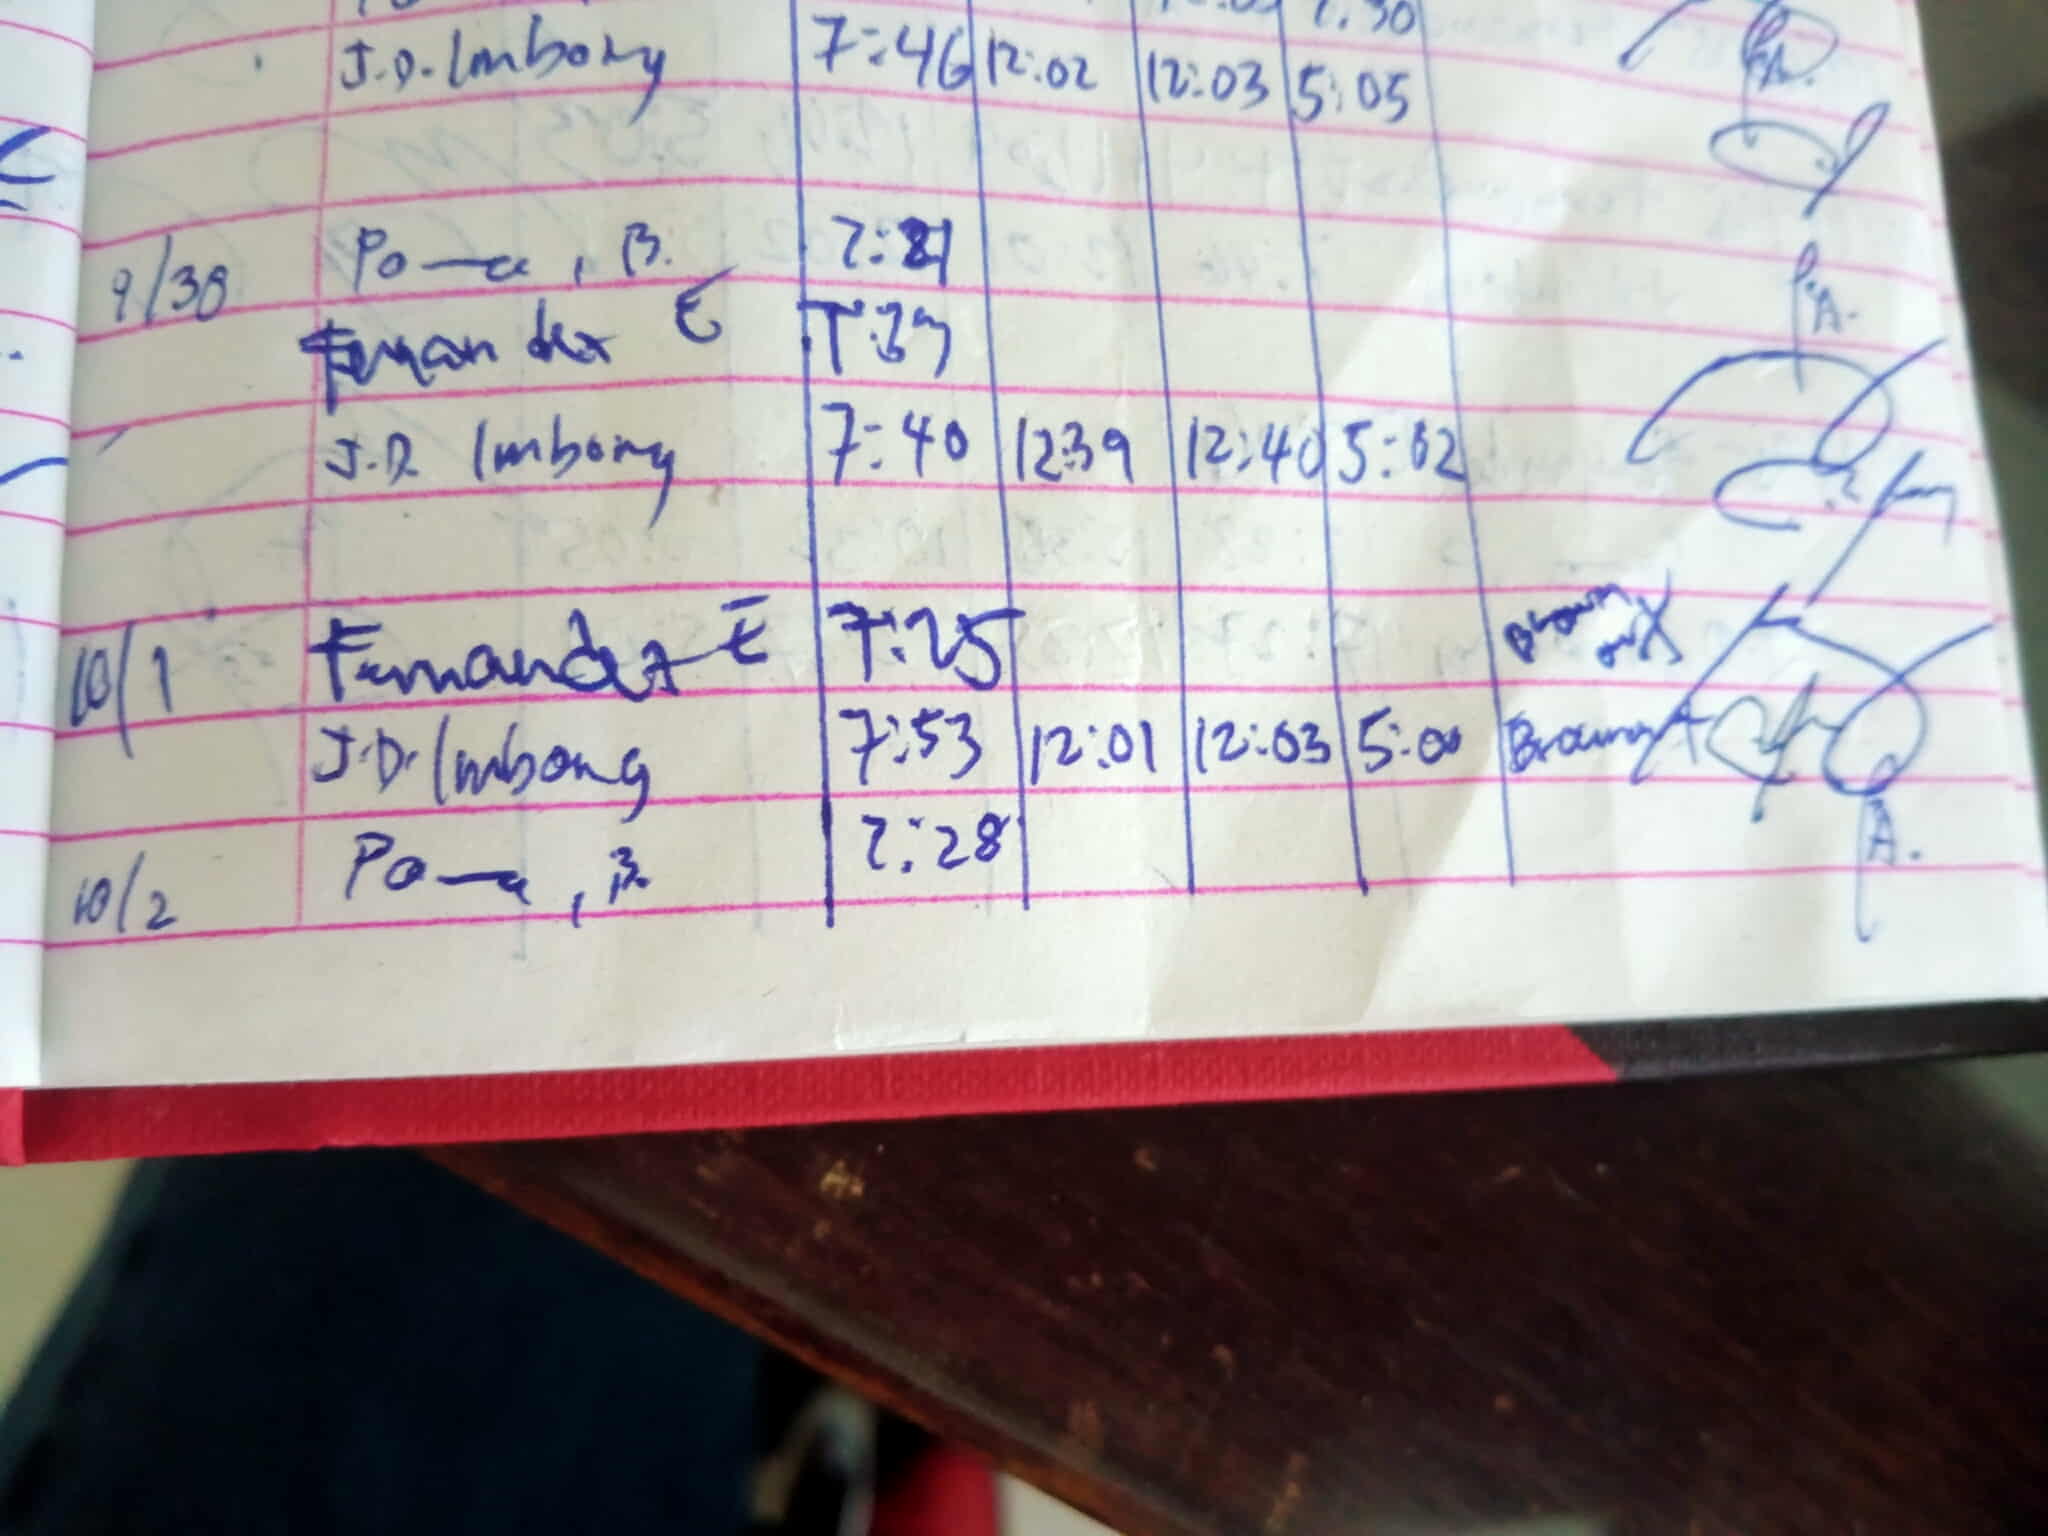 7:30
J.D. Imbong 7:46 12:02 12:03 5:05
P.A.
9/30 B. 7:21
Fernandez E 7:39
P.A.
J.D. Imbong 7:40 12:39 12:40 5:02
10/1 Fernandez E 7:25 Brown out
J.D. Imbong 7:53 12:01 12:03 5:00 Brown
10/2 B. 7:28 P.A.